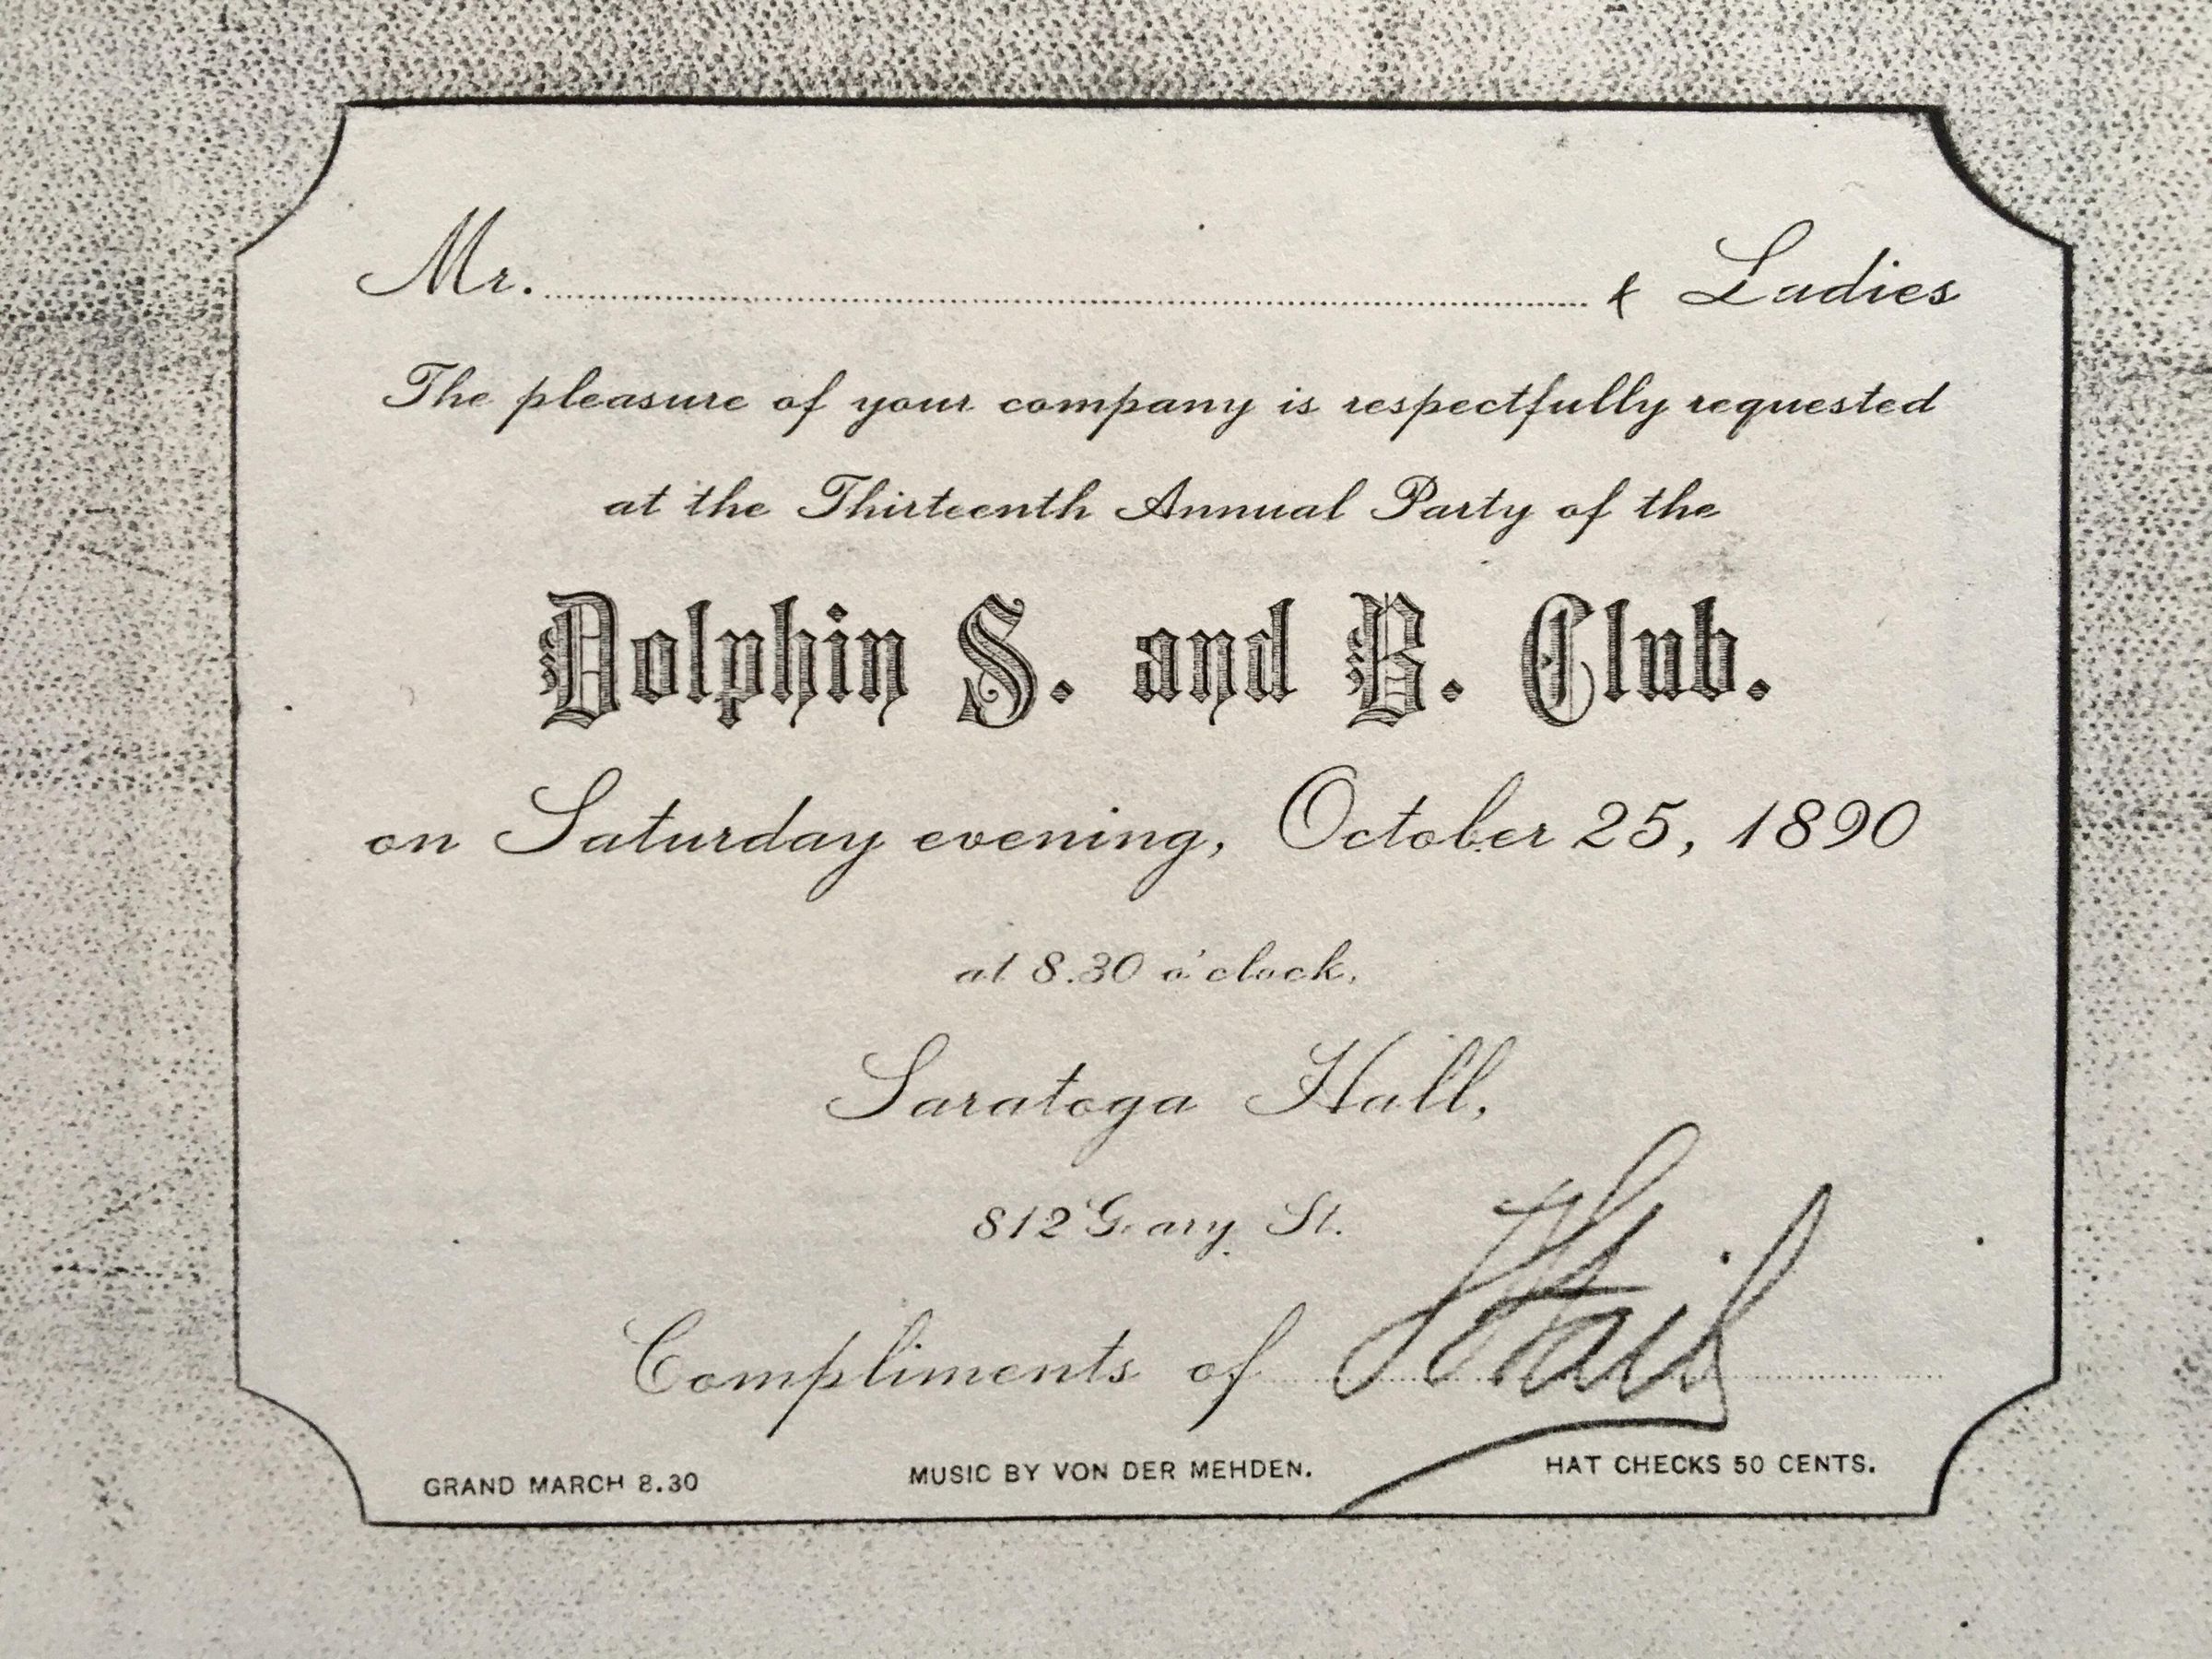 Mr. & Ladies
The pleasure of your company is respectfully requested
at the Thirteenth Annual Party of the
Dolphin S. and B. Club.
on Saturday evening, October 25, 1890
at 8.30 o'clock,
Saratoga Hall,
812 Geary St.
Compliments of
GRAND MARCH 8.30 MUSIC BY VON DER MEHDEN. HAT CHECKS 50 CENTS.